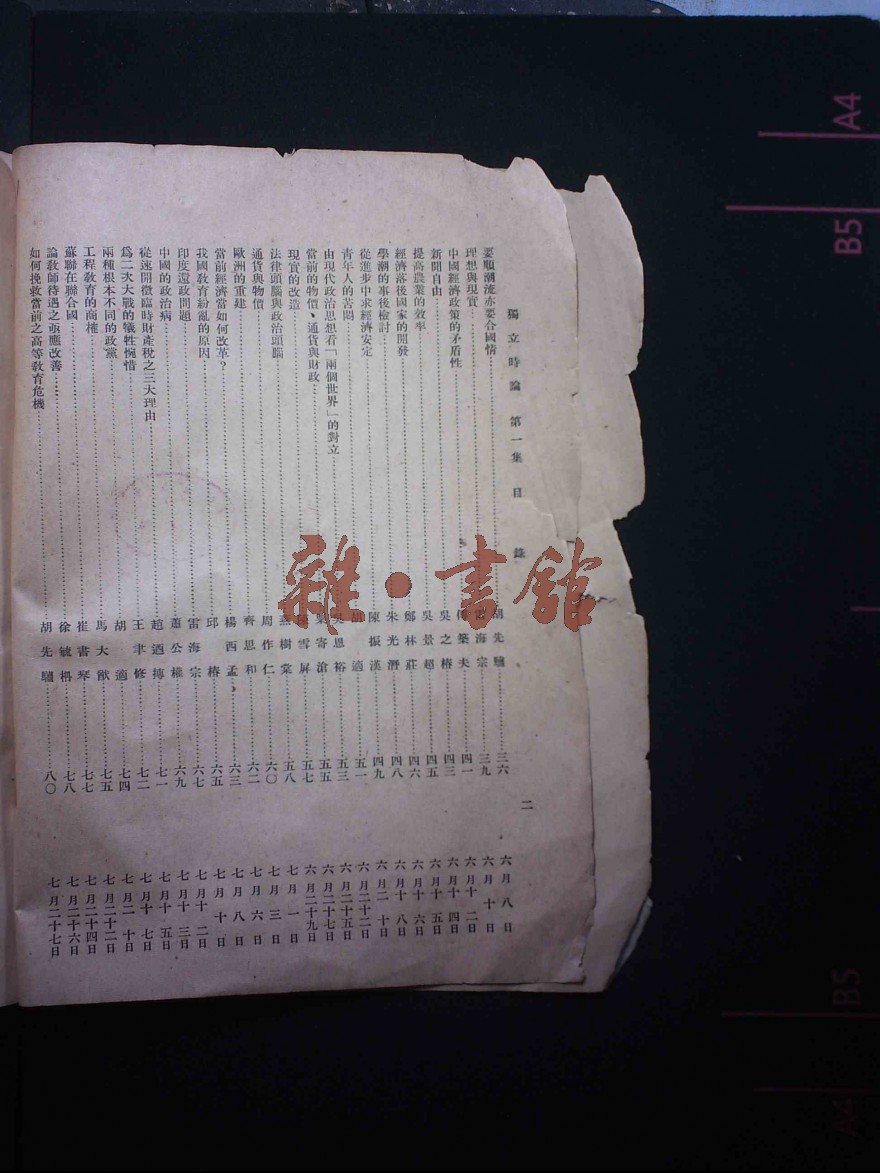 獨立時論 第一集 目錄 二
要順潮流亦要合國情 胡先驌 三六 六月八日
理想與現實 雷海宗 三九 六月十日
中國經濟政策的矛盾性 傅築夫 四一 六月十二日
新聞自由 吳之椿 四三 六月十四日
提高農業的效率 吳景超 四五 六月十五日
經濟落後國家的開發 鄭林莊 四六 六月十六日
學潮的事後檢討 朱光潛 四八 六月十八日
從進步中求經濟安定 陳振漢 四九 六月二十日
青年人的苦悶 胡適 五一 六月二十二日
由現代政治思想看「兩個世界」的對立 吳恩裕 五三 六月二十五日
當前的物價、通貨與財政 寄滄 五五 六月二十七日
現實的改造 陳雪屏 五七 六月二十九日
法律頭腦與政治頭腦 燕樹棠 五八 七月一日
通貨與物價 周作仁 六〇 七月三日
歐洲的重建 齊思和 六二 七月六日
當前經濟當如何改革? 楊西孟 六三 七月八日
我國敎育紛亂的原因 邱椿 六五 七月十日
印度憲政問題 雷海宗 六七 七月十二日
中國的政治病 蕭公權 六九 七月十三日
從速開徵臨時財產稅之三大理由 趙迺摶 七一 七月十五日
爲二次大戰的犧牲惋惜 王聿修 七二 七月十七日
兩種根本不同的政黨 胡適 七四 七月二十日
工程敎育的商榷 馬大猷 七五 七月二十二日
蘇聯在聯合國 崔書琴 七七 七月二十四日
論敎師待遇之亟應改善 徐毓枬 七八 七月二十六日
如何挽救當前之高等敎育危機 胡先驌 八〇 七月二十七日
雜·書館
A4
B5
B5
A4